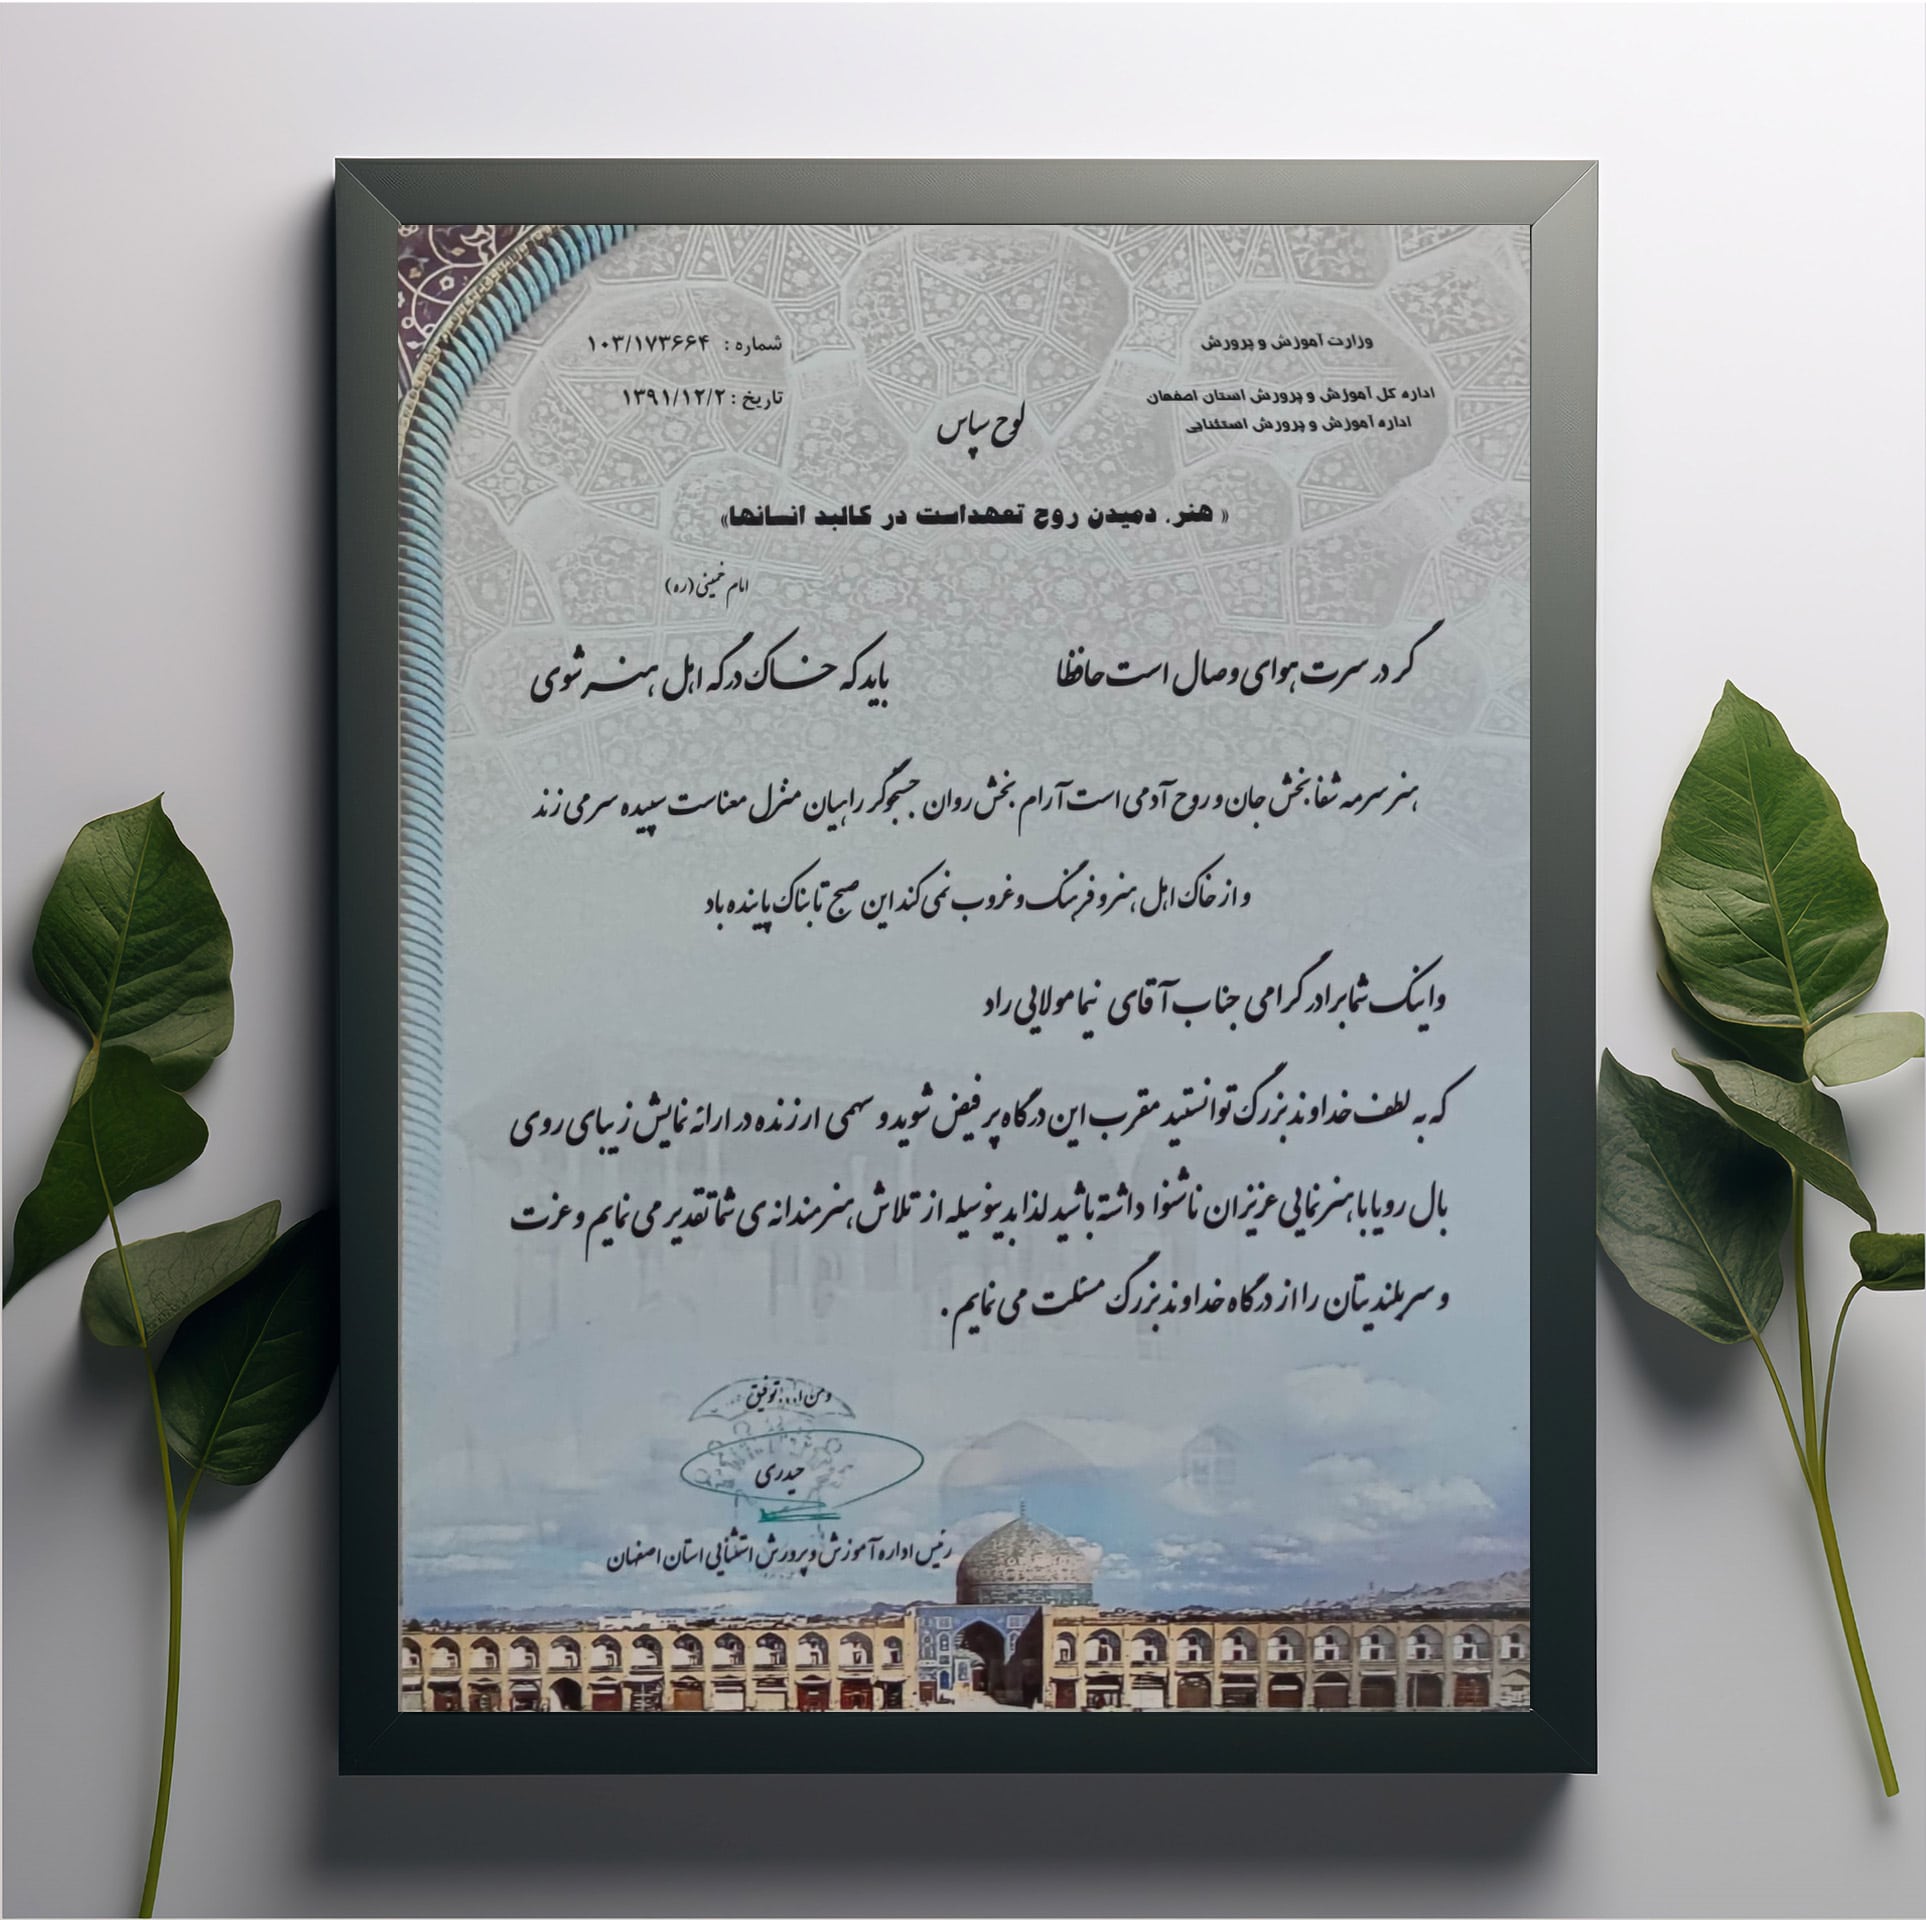 وزارت آموزش و پرورش
اداره کل آموزش و پرورش استان اصفهان
اداره آموزش و پرورش استثنایی
شماره : ۱۰۳/۱۷۳۶۶۴
تاریخ : ۱۳۹۱/۱۲/۲
لوح سپاس
« هنر، دمیدن روح تعهداست در کالبد انسانها»
امام خمینی (ره)
گر در سرت هوای وصال است حافظا باید که خاک درگه اهل هنر شوی
هنر سرمه شفابخش جان و روح آدمی است آرام بخش روان جستجوگر راهیان منزل معناست سپیده سر می زند
و از خاک اهل هنر و فرهنگ و غروب نمی کند این صبح تابناک پاینده باد
و اینک شما برادر گرامی جناب آقای نیما مولایی راد
که به لطف خداوند بزرگ توانستید مقرب این درگاه پر فیض شوید و سهمی ارزنده در ارائه نمایش زیبای روی
بال رویا با هنرنمایی عزیزان ناشنوا داشته باشید لذا بدینوسیله از تلاش هنرمندانه ی شما تقدیر می نمایم و عزت
و سربلندیتان را از درگاه خداوند بزرگ مسئلت می نمایم .
ومن ا... التوفیق
حیدری
رئیس اداره آموزش و پرورش استثنایی استان اصفهان